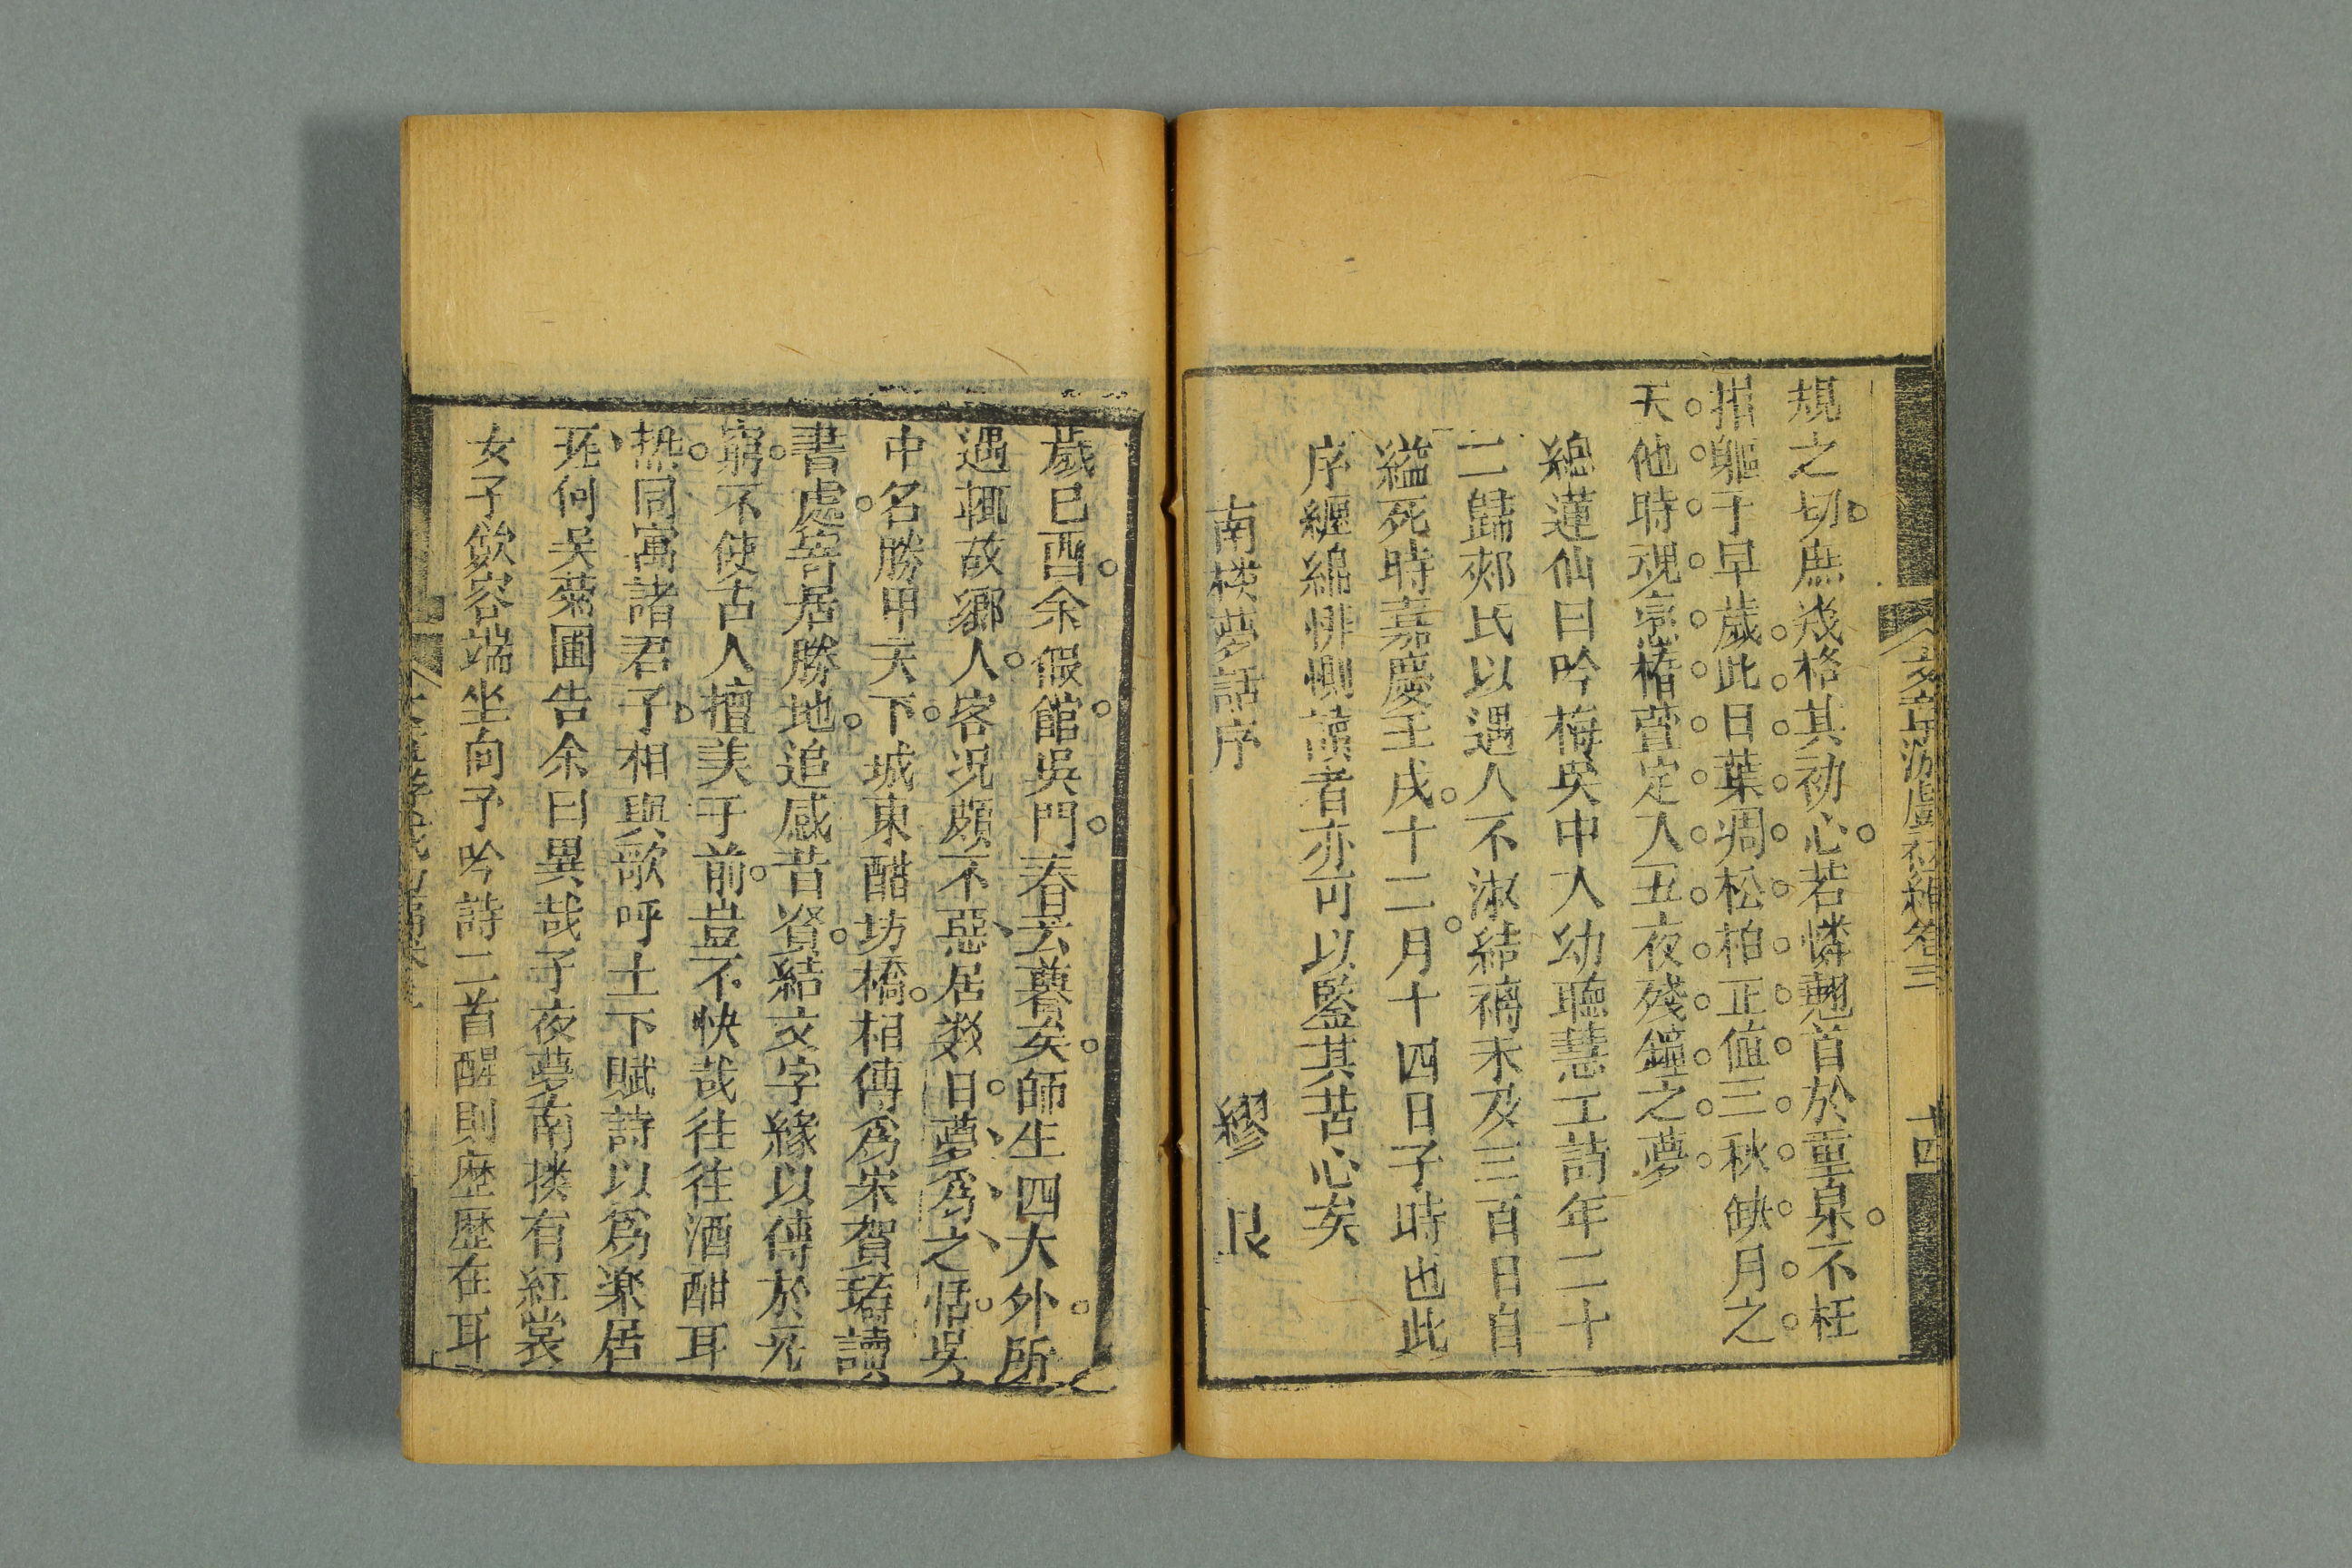 文章游戲初編卷三 十四
規之切庶幾格其初心若憐翹首於重泉不枉
捐軀于早歲此日葉凋松柏正值三秋缺月之
天他時魂戀椿萱定入五夜殘鐘之夢
繆蓮仙曰吟梅吳中人幼聰慧工詩年二十
二歸郟氏以遇人不淑結褵未及三百日自
縊死時嘉慶壬戌十二月十四日子時也此
序纏綿悱惻讀者亦可以鑒其苦心矣
南樓夢話序 繆艮
歲巳酉余假館吳門春云暮矣師生四大外所
遇輒故鄉人客况頗不惡居數日夢爲之恬吳
中名勝甲天下城東醋坊橋相傳爲宋賀璹讀
書處寄居勝地追感昔賢結文字緣以傳於無
窮不使古人擅美于前豈不快哉往往酒酣耳
熱同寓諸君子相與歌呼上下賦詩以爲樂居
無何吳菊圃告余曰異哉子夜夢南樓有紅裳
女子斂容端坐向予吟詩二首醒則歷歷在耳